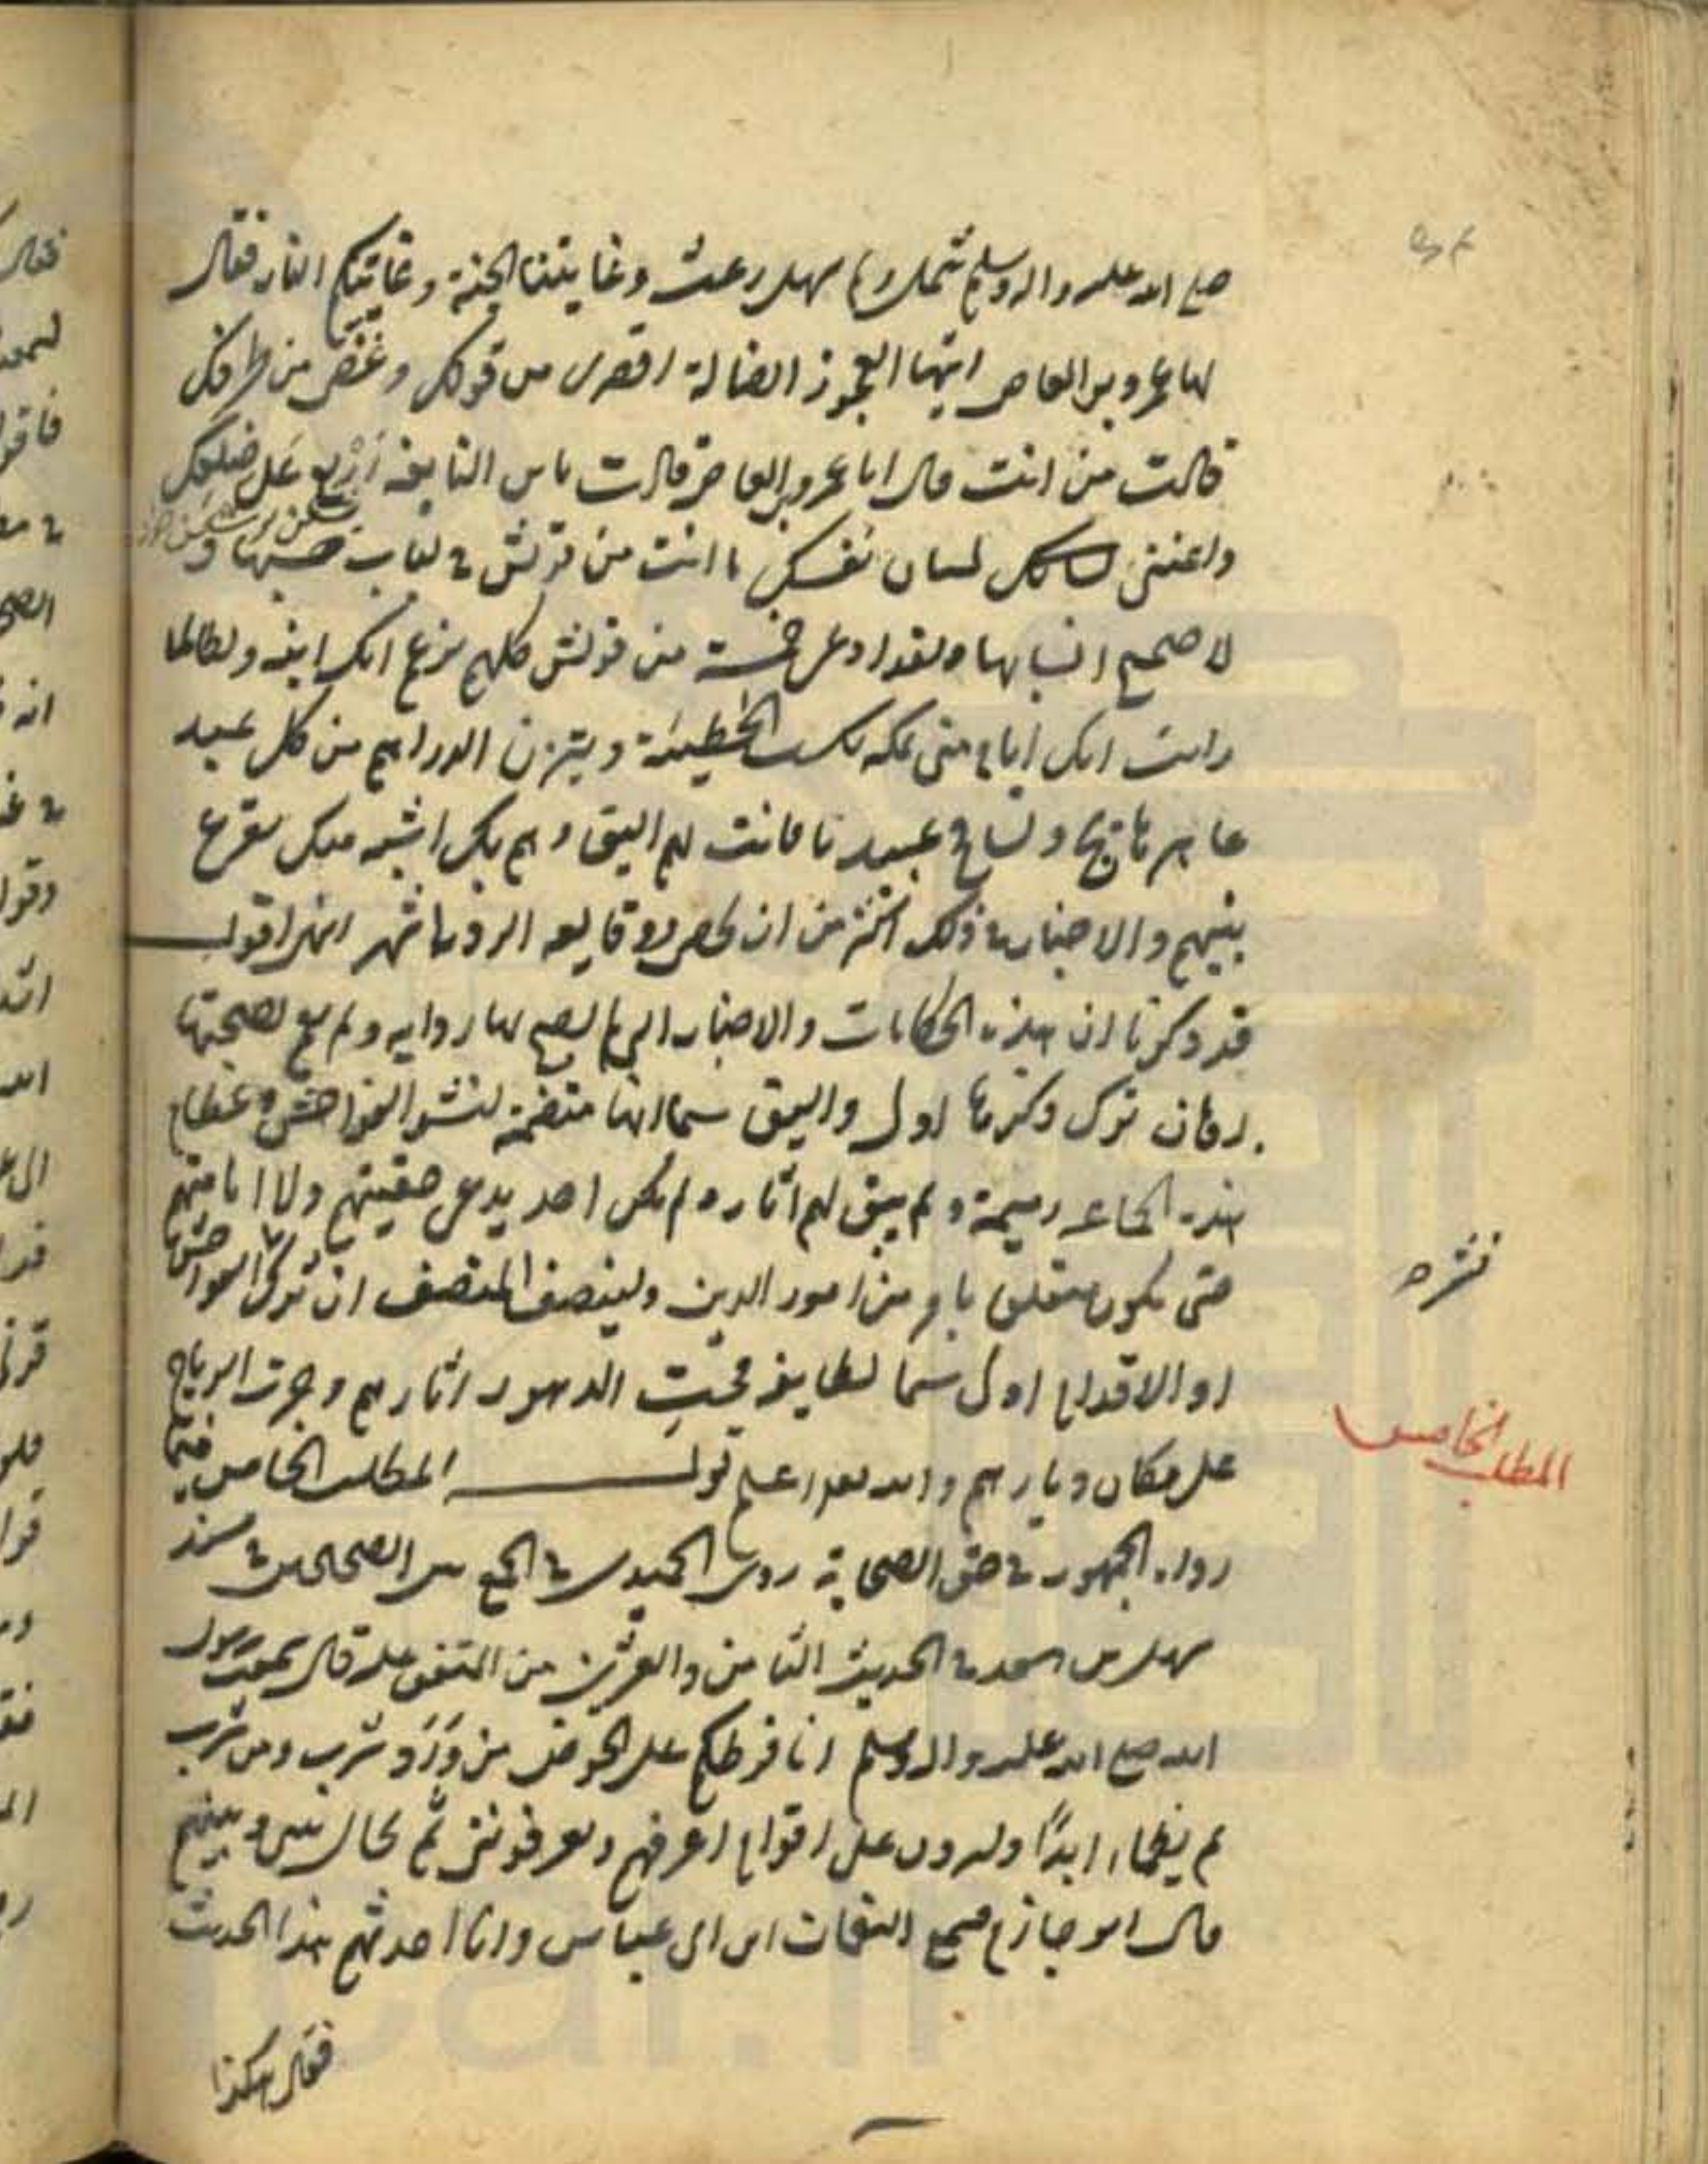 صلى الله عليه واله وسلم شملنا سهل وعث وغايتنا الجنة وغايتكم النار فقال
لها عمرو بن العاص ايتها العجوز الضالة اقصري من قولك وغضي من طرفك
قالت من انت قال انا عمرو بن العاص قالت يابن النابغة اربع على ضلعك
واعنني لسانك لسان نفسك ما انت من قريش في لباب حسبها و
لا صحيح انسابها ولقد ادعى خمسة من قريش كلهم يزعم انك ابنه ولطالما
رايت امك ايام منى بمكة تكسب الخطيئة ويتزن الدراهم من كل عبد
عاهر هائج وتسافح عبيدنا فانت لهم اليق وهم بك اشبه منك بقرع
بينهم والاخبار في ذلك اكثر من ان تحصر وقايعه اله ردها شهر انتهى اقول
قد ذكرنا ان هذه الحكايات والاخبار التي لم يصح لها رواية ولم يقع لصحتها
فان ترك ذكرها اولى واليق سيما انها متضمنة لنشر الفواحش وعظام
هذه الجماعه رميمة ولم يبق لهم اثار ولم يكن احد يدعي حقيتهم ولا امامتهم
حتى يكون متعلق بامر من امور الدين ولينصف المنصف ان ترك الفواحش
او الاقدام اولى سيما لطايفة محت الدهور اثارهم وجرت الرياح
على مكان ديارهم والله تعالى اعلم قوله المطلب الخامس فيما
رواه الجمهور في حق الصحابة روى الحميدي في الجمع بين الصحيحين في مسند
سهل بن سعد في الحديث الثامن والعشرين من المتفق عليه قال سمعت رسول
الله صلى الله عليه واله وسلم انا فرطكم على الحوض من ورد شرب ومن شرب
لم يظماء ابدًا وليردن على اقوام اعرفهم ويعرفونني ثم يحال بيني وبينهم
قال ابو حازم فسمع النعمان ابن ابي عياش وانا احدثهم هذا الحديث
فقال هكذا
نشره
المطلب الخامس